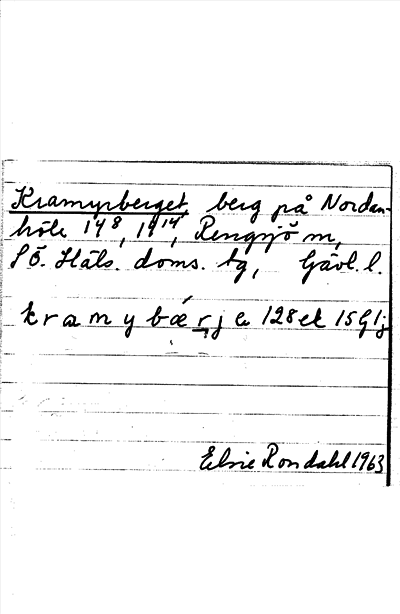 Kramyrberget, berg på Nordan-
höle 1⁴8, 1⁹14, Rengsjö sn,
SÖ. Häls. doms. tg, Gävl. l.
kramybærje 128ek 15Glj
Elsie Rondahl 1963